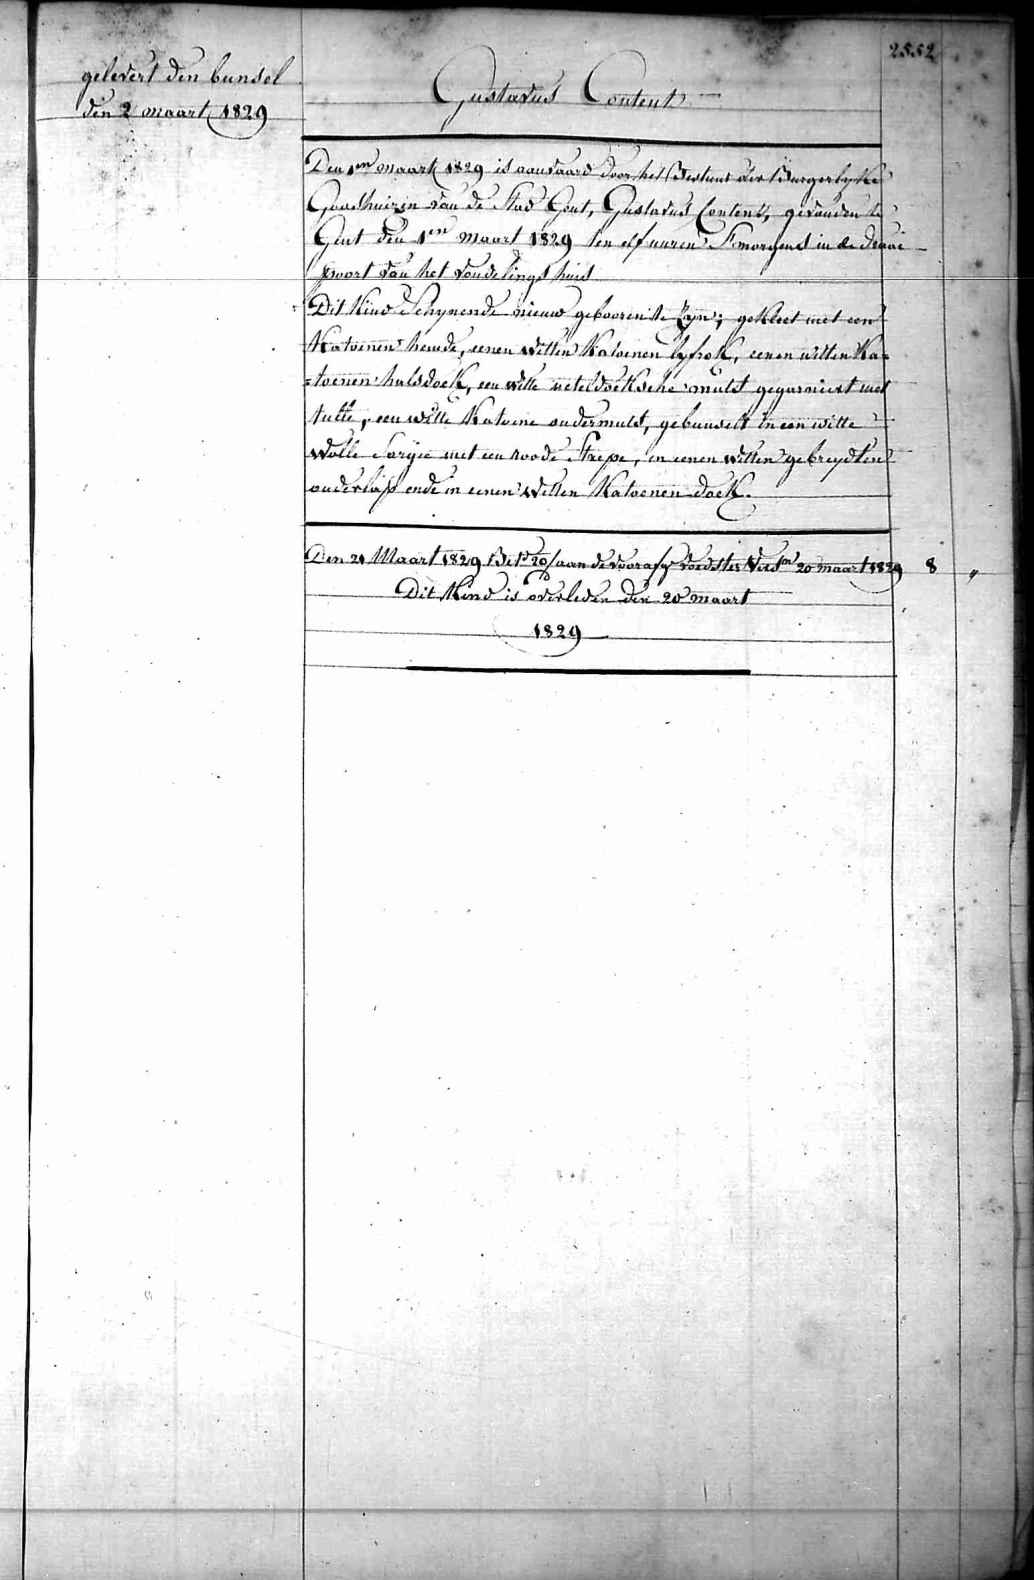 2552
gelevert den bunsel
den 2 maart 1829
Gustavus Content
Den 1en maart 1829 is aanvaard door het Bestuur der Burgerlyke
Godshuizen van de Stad Gent, Gustavus Content, gevonden te
Gent den 1en maart 1829 ten elf uuren S'morgens in de draai
poort van het vondelings huis
Dit Kind Schynende nieuw gebooren te zyn; gekleet met een
Katoenen hemde, eenen witten Katoenen lyfrok, eenen witten Ka=
=toenen halsdoek, een witte neteldoeksche muts gegarniert met
tulle, een witte Katoene ondermuts, gebunselt in een witte
wolle Sargie met een roode Strepe, in eenen witten gebreydten
onderlap ende in eenen witten Katoenen doek.
Den 21 Maart 1829 Bet 20/aan de voorafg voedster 20 maart 1829 8 "
Dit Kind is overleden den 20 maart
1829